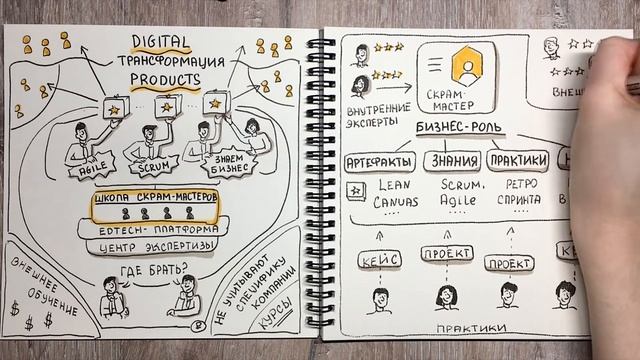 DIGITAL
ТРАНСФОРМАЦИЯ
PRODUCTS
AGILE
SCRUM
ЗНАЕМ
БИЗНЕС
ШКОЛА СКРАМ-МАСТЕРОВ
EDTECH-ПЛАТФОРМА
ЦЕНТР ЭКСПЕРТИЗЫ
ГДЕ БРАТЬ?
ВНЕШНЕЕ
ОБУЧЕНИЕ
$ $ $
НЕ УЧИТЫВАЮТ
СПЕЦИФИКУ
КОМПАНИИ
КУРСЫ
ВНУТРЕННИЕ
ЭКСПЕРТЫ
СКРАМ-
МАСТЕР
БИЗНЕС-РОЛЬ
АРТЕФАКТЫ
ЗНАНИЯ
ПРАКТИКИ
LEAN
CANVAS
SCRUM,
AGILE
РЕТРО
СПРИНТА
КЕЙС
ПРОЕКТ
ПРОЕКТ
ПРАКТИКИ